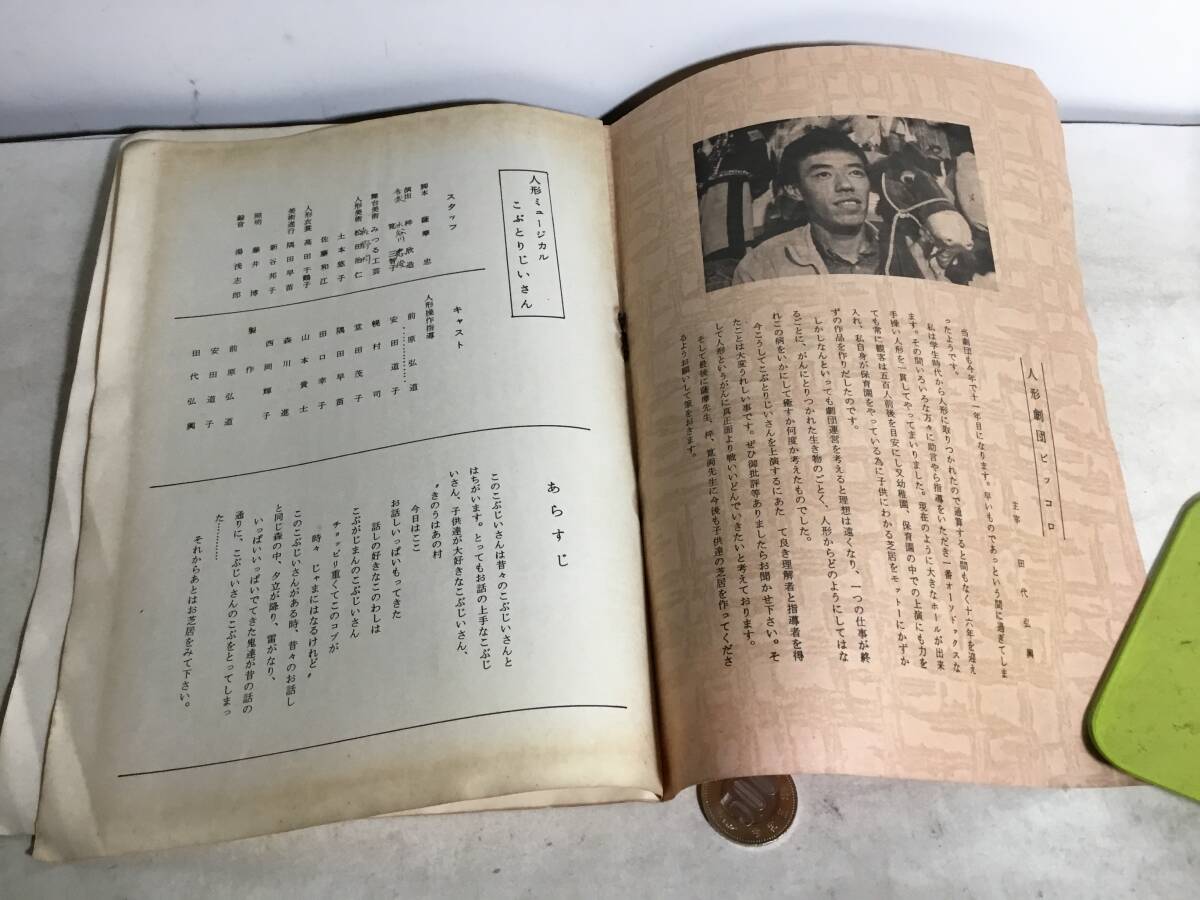 人形劇団ピッコロ
主宰 田代弘興
当劇団も今年で十一年目になります。早いものであっという間に過ぎてしま
ったようです。
私は学生時代から人形に取りつかれたので通算すると間もなく十六年を迎え
ます。その間いろいろな方々に助言やら指導をいただき一番オーソドックスな
手操い人形を一貫してやってまいりました。現在のように大きなホールが出来
ても常に観客は五百人前後を目安にし又幼稚園、保育園の中での上演にも力を
入れ、私自身が保育園をやっている為に子供にわかる芝居をモットーにかずか
ずの作品を作りだしたのです。
しかしなんといっても劇団運営を考えると理想は遠くなり、一つの仕事が終
るごとに、がんにとりつかれた生き物のごとく、人形からどのようにしてはな
れこの病をいかにして癒すか何度か考えたものでした。
今こうしてこぶとりじいさんを上演するにあた て良き理解者と指導者を得
たことは大変うれしい事です。ぜひ御批評等ありましたらお聞かせ下さい。そ
して人形というがんに真正面より戦いいどんでいきたいと考えております。
そして最後に薩摩先生、梓、寛両先生に今後も子供達の芝居を作ってくださ
るようお願いして筆をおきます。
人形ミュージカル
こぶとりじいさん
スタッフ
脚本 薩摩 忠
演出 梓 欣造
舞台美術 みつる工芸
人形美術 松田治仁
土本悠子
佐藤和江
人形衣裳 高田千鶴子
美術進行 隅田早苗
新谷邦子
照明 藤井 博
録音 湯浅志郎
キャスト
人形操作指導
前原弘道
安田道子
幌村 司
堂田茂子
隅田早苗
田口幸子
山本貴士
森川 進
西岡輝子
製作
前原弘道
安田道子
田代弘興
あらすじ
このこぶじいさんは昔々のこぶじいさんと
はちがいます。とってもお話の上手なこぶじ
いさん、子供達が大好きなこぶじいさん、
〝きのうはあの村
今日はここ
お話しいっぱいもってきた
話しの好きなこのわしは
こぶがじまんのこぶじいさん
チョッピリ重くてこのコブが
時々 じゃまにはなるけれど〟
このこぶじいさんがある時、昔々のお話し
と同じ森の中、夕立が降り、雷がなり、
いっぱいいっぱいでてきた鬼達が昔の話の
通りに、こぶじいさんのこぶをとってしまっ
た…………
それからあとはお芝居をみて下さい。
500